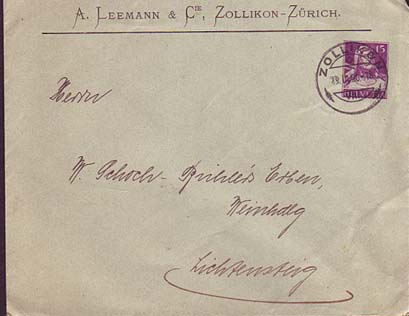 A. LEEMANN & CIE, ZOLLIKON-ZÜRICH.
15
ZOLLIKON
HELVETIA
Herrn
W. Schoch- Erben,
Weinhdlg
Lichtensteig